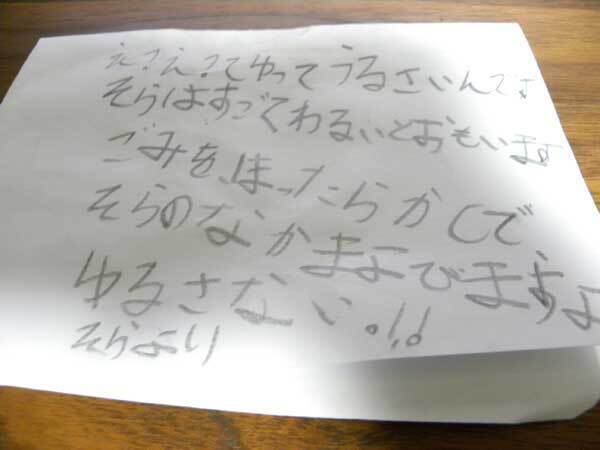 え?え?てゆってうるさいんです
そらはすごくわるいとおもいます
ごみを、ほったらかしで
そらのなかまよびますよ
ゆるさない。!!
そらより